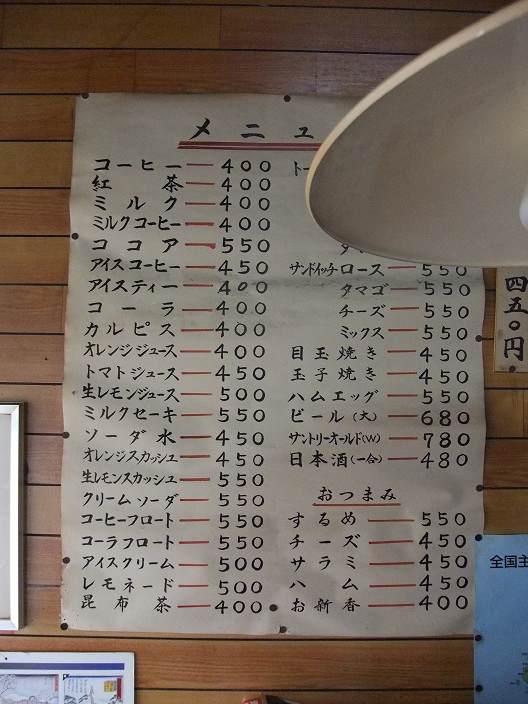 メニュ
コーヒー 400
紅茶 400
ミルク 400
ミルクコーヒー 400
ココア 550
アイスコーヒー 450
アイスティー 400
コーラ 400
カルピス 400
オレンジジュース 400
トマトジュース 450
生レモンジュース 500
ミルクセーキ 550
ソーダ水 450
オレンジスカッシュ 450
生レモンスカッシュ 550
クリームソーダ 550
コーヒーフロート 550
コーラフロート 550
アイスクリーム 500
レモネード 500
昆布茶 400
トー
サンドイッチロース 550
タマゴ 550
チーズ 550
ミックス 550
目玉焼き 450
玉子焼き 450
ハムエッグ 550
ビール(大) 680
サントリーオールド(W) 780
日本酒(一合) 480
おつまみ
するめ 550
チーズ 450
サラミ 450
ハム 450
お新香 400
四五〇円
全国主